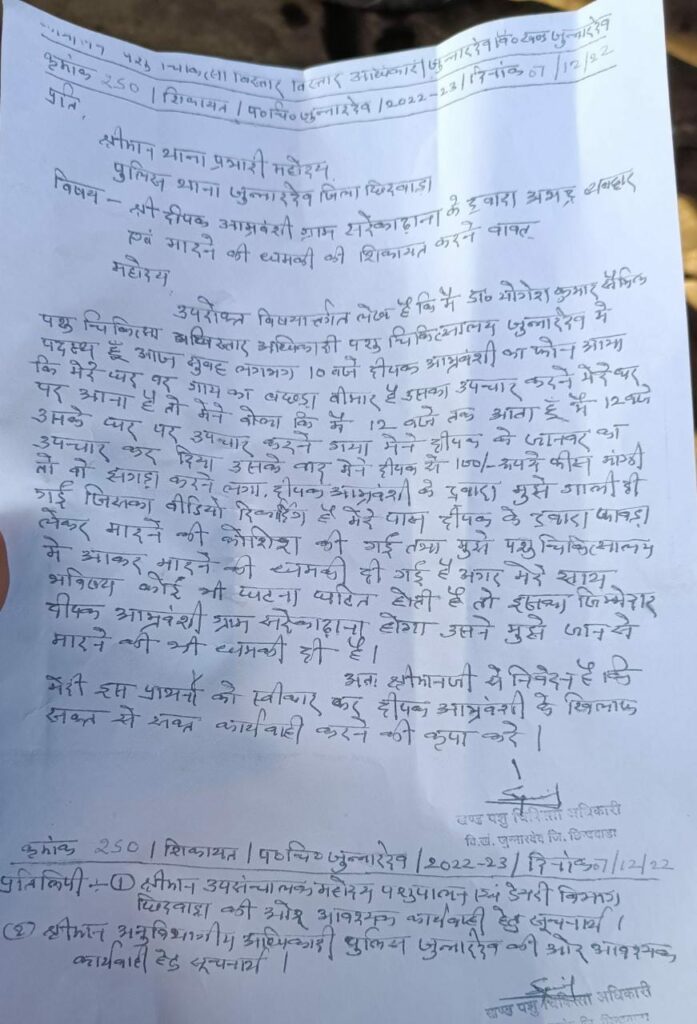 कार्यालय पशु चिकित्सा विस्तार अधिकारी जुन्नारदेव वि०खण्ड जुन्नारदेव
क्रमांक 250 / शिकायत / प०चि० जुन्नारदेव / 2022-23 / दिनांक 07/12/22
प्रति,
श्रीमान थाना प्रभारी महोदय,
पुलिस थाना जुन्नारदेव जिला छिंदवाडा
विषय - श्री दीपक आम्रवंशी ग्राम के द्वारा अभद्र व्यवहार
एवं मारने की धमकी की शिकायत करने वावत्
महोदय
उपरोक्त विषयान्तर्गत लेख है कि मै डॉ० योगेश कुमार
पशु चिकित्सा विस्तार अधिकारी पशु चिकित्सालय जुन्नारदेव मे
पदस्थ हूँ आज सुबह लगभग 10 वजे दीपक आम्रवंशी का फोन आया
कि मेरे घर पर गाय का बछड़ा बीमार है उसका उपचार करने मेरे घर
पर आना है तो मेने बोला कि मै 12 वजे तक आता हूँ मै 12 वजे
उसके घर पर उपचार करने गया मेने दीपक के जानवर का
उपचार कर दिया उसके बाद मेने दीपक से 100/- रूपये फीस मांगी
तो वो झगड़ा करने लगा. दीपक आम्रवंशी के द्वारा मुझे गाली दी
गई जिसका वीडियो रिकार्डिंग है मेरे पास दीपक के द्वारा फावड़ा
लेकर मारने की कोशिश की गई तथा मुझे पशु चिकित्सालय
मे आकर मारने की धमकी दी गई है अगर मेरे साथ
भविष्य कोई भी घटना घटित होती है तो इसका जिम्मेदार
दीपक आम्रवंशी ग्राम होगा उसने मुझे जान से
मारने की भी धमकी दी है।
अतः श्रीमानजी से निवेदन है कि
मेरी इस प्रार्थना को स्वीकार कर दीपक आम्रवंशी के खिलाफ
सख्त से सख्त कार्यवाही करने की कृपा करे।
खण्ड पशु चिकित्सा अधिकारी
वि.खं. जुन्नारदेव जि. छिन्दवाडा
क्रमांक 250 / शिकायत / प०चि० जुन्नारदेव / 2022-23 / दिनांक 07/12/22
प्रतिलिपी :- (1) श्रीमान उपसंचालक महोदय पशुपालन एवं डेयरी विभाग
छिंदवाडा की ओर आवश्यक कार्यवाही हेतु सूचनार्थ।
(2) श्रीमान अनुविभागीय अधिकारी पुलिस जुन्नारदेव की ओर आवश्यक
कार्यवाही हेतु सूचनार्थ।
खण्ड पशु चिकित्सा अधिकारी